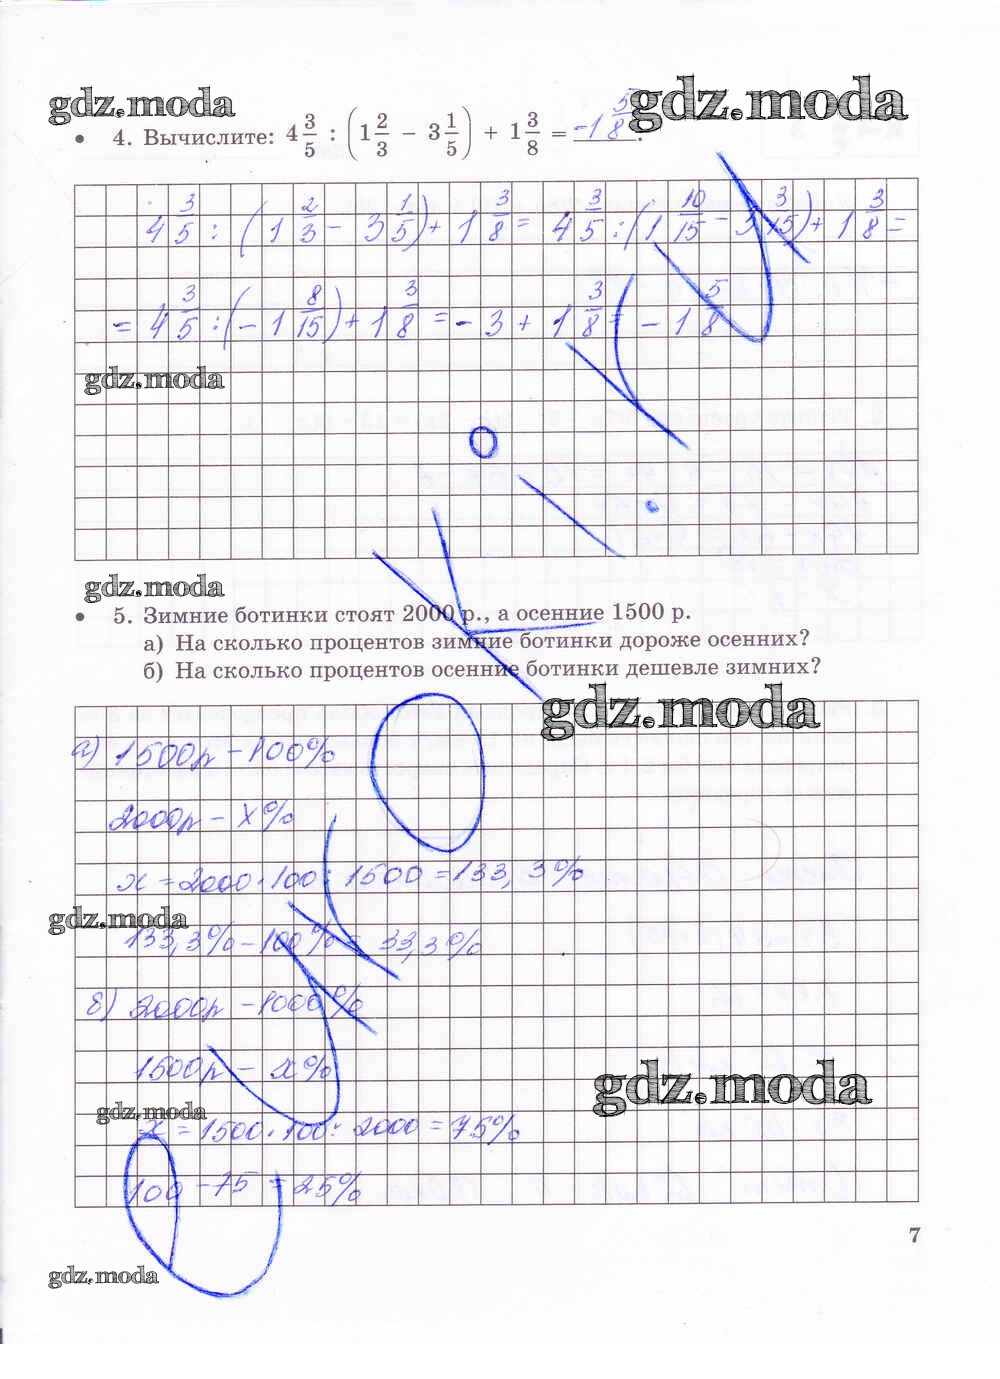 gdz.moda
gdz.moda
4. Вычислите: 4 3/5 : (1 2/3 − 3 1/5) + 1 3/8 = -1 5/8.
4 3/5 : (1 2/3 - 3 1/5) + 1 3/8 = 4 3/5 : (1 10/15 - 3 3/15) + 1 3/8 =
= 4 3/5 : (- 1 8/15) + 1 3/8 = - 3 + 1 3/8 = - 1 5/8
gdz.moda
gdz.moda
5. Зимние ботинки стоят 2000 р., а осенние 1500 р.
а) На сколько процентов зимние ботинки дороже осенних?
б) На сколько процентов осенние ботинки дешевле зимних?
gdz.moda
а) 1500р - 100%
2000р - x%
x = 2000 · 100 : 1500 = 133,3%
gdz.moda
133,3% - 100% = 33,3%
б) 2000р - 1000%
1500р - x%
gdz.moda
gdz.moda
x = 1500 · 100 : 2000 = 75%
100 - 75 = 25%
7
gdz.moda